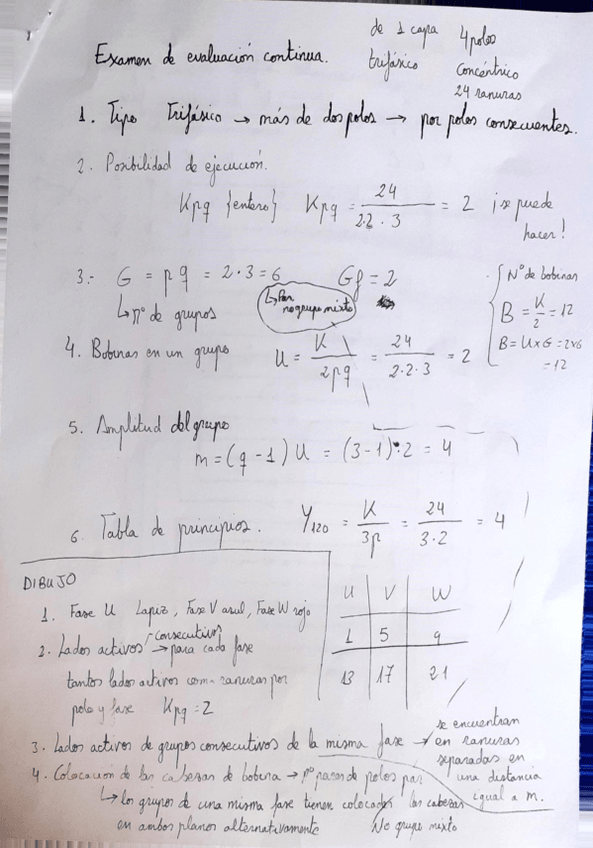 de 1 capa
4 polos
Examen de evaluación continua.
trifásico
concéntrico
24 ranuras
1. Tipo Trifásico → más de dos polos → por polos consecuentes.
2. Posibilidad de ejecución.
Kpq {entero} Kpq = 24 / 2.2.3 = 2 ¡se puede
hacer!
3.- G = pq = 2·3 = 6 Gf = 2
↳ nº de grupos
↳ Par
no grupo mixto
Nº de bobinas
B = K/2 = 12
B = U×G = 2×6
= 12
4. Bobinas en un grupo U = K / 2pq = 24 / 2·2·3 = 2
5. Amplitud del grupo
m = (q - 1) U = (3-1)·2 = 4
6. Tabla de principios. Y120 = K / 3p = 24 / 3·2 = 4
U V W
1 5 9
13 17 21
DIBUJO
1. Fase U Lapiz, Fase V azul, Fase W rojo
2. Lados activos consecutivos → para cada fase
tantos lados activos como ranuras por
polo y fase Kpq = 2
3. Lados activos de grupos consecutivos de la misma fase →
se encuentran
en ranuras
separadas en
una distancia
igual a m.
4. Colocación de las cabezas de bobina → nº pares de polos par
↳ los grupos de una misma fase tienen colocados las cabezas
en ambos planos alternativamente No grupo mixto